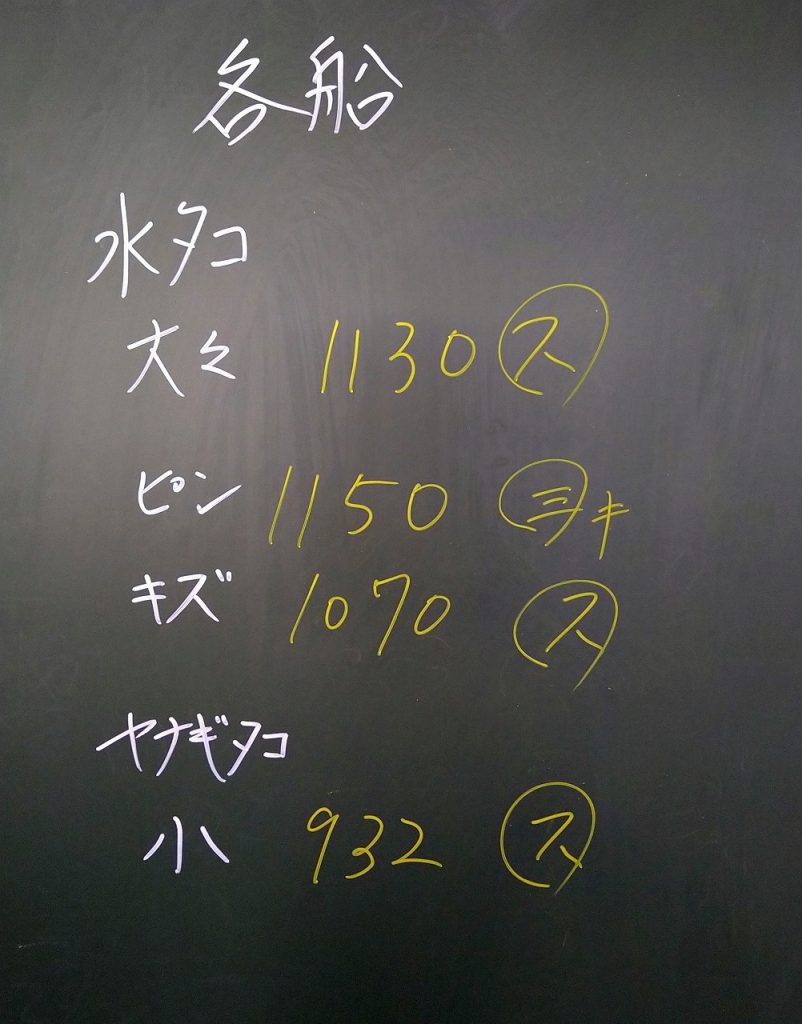 各船
水タコ
大々 1130 ㋜
ピン 1150 ㋵キ
キズ 1070 ㋜
ヤナギタコ
小 932 ㋜